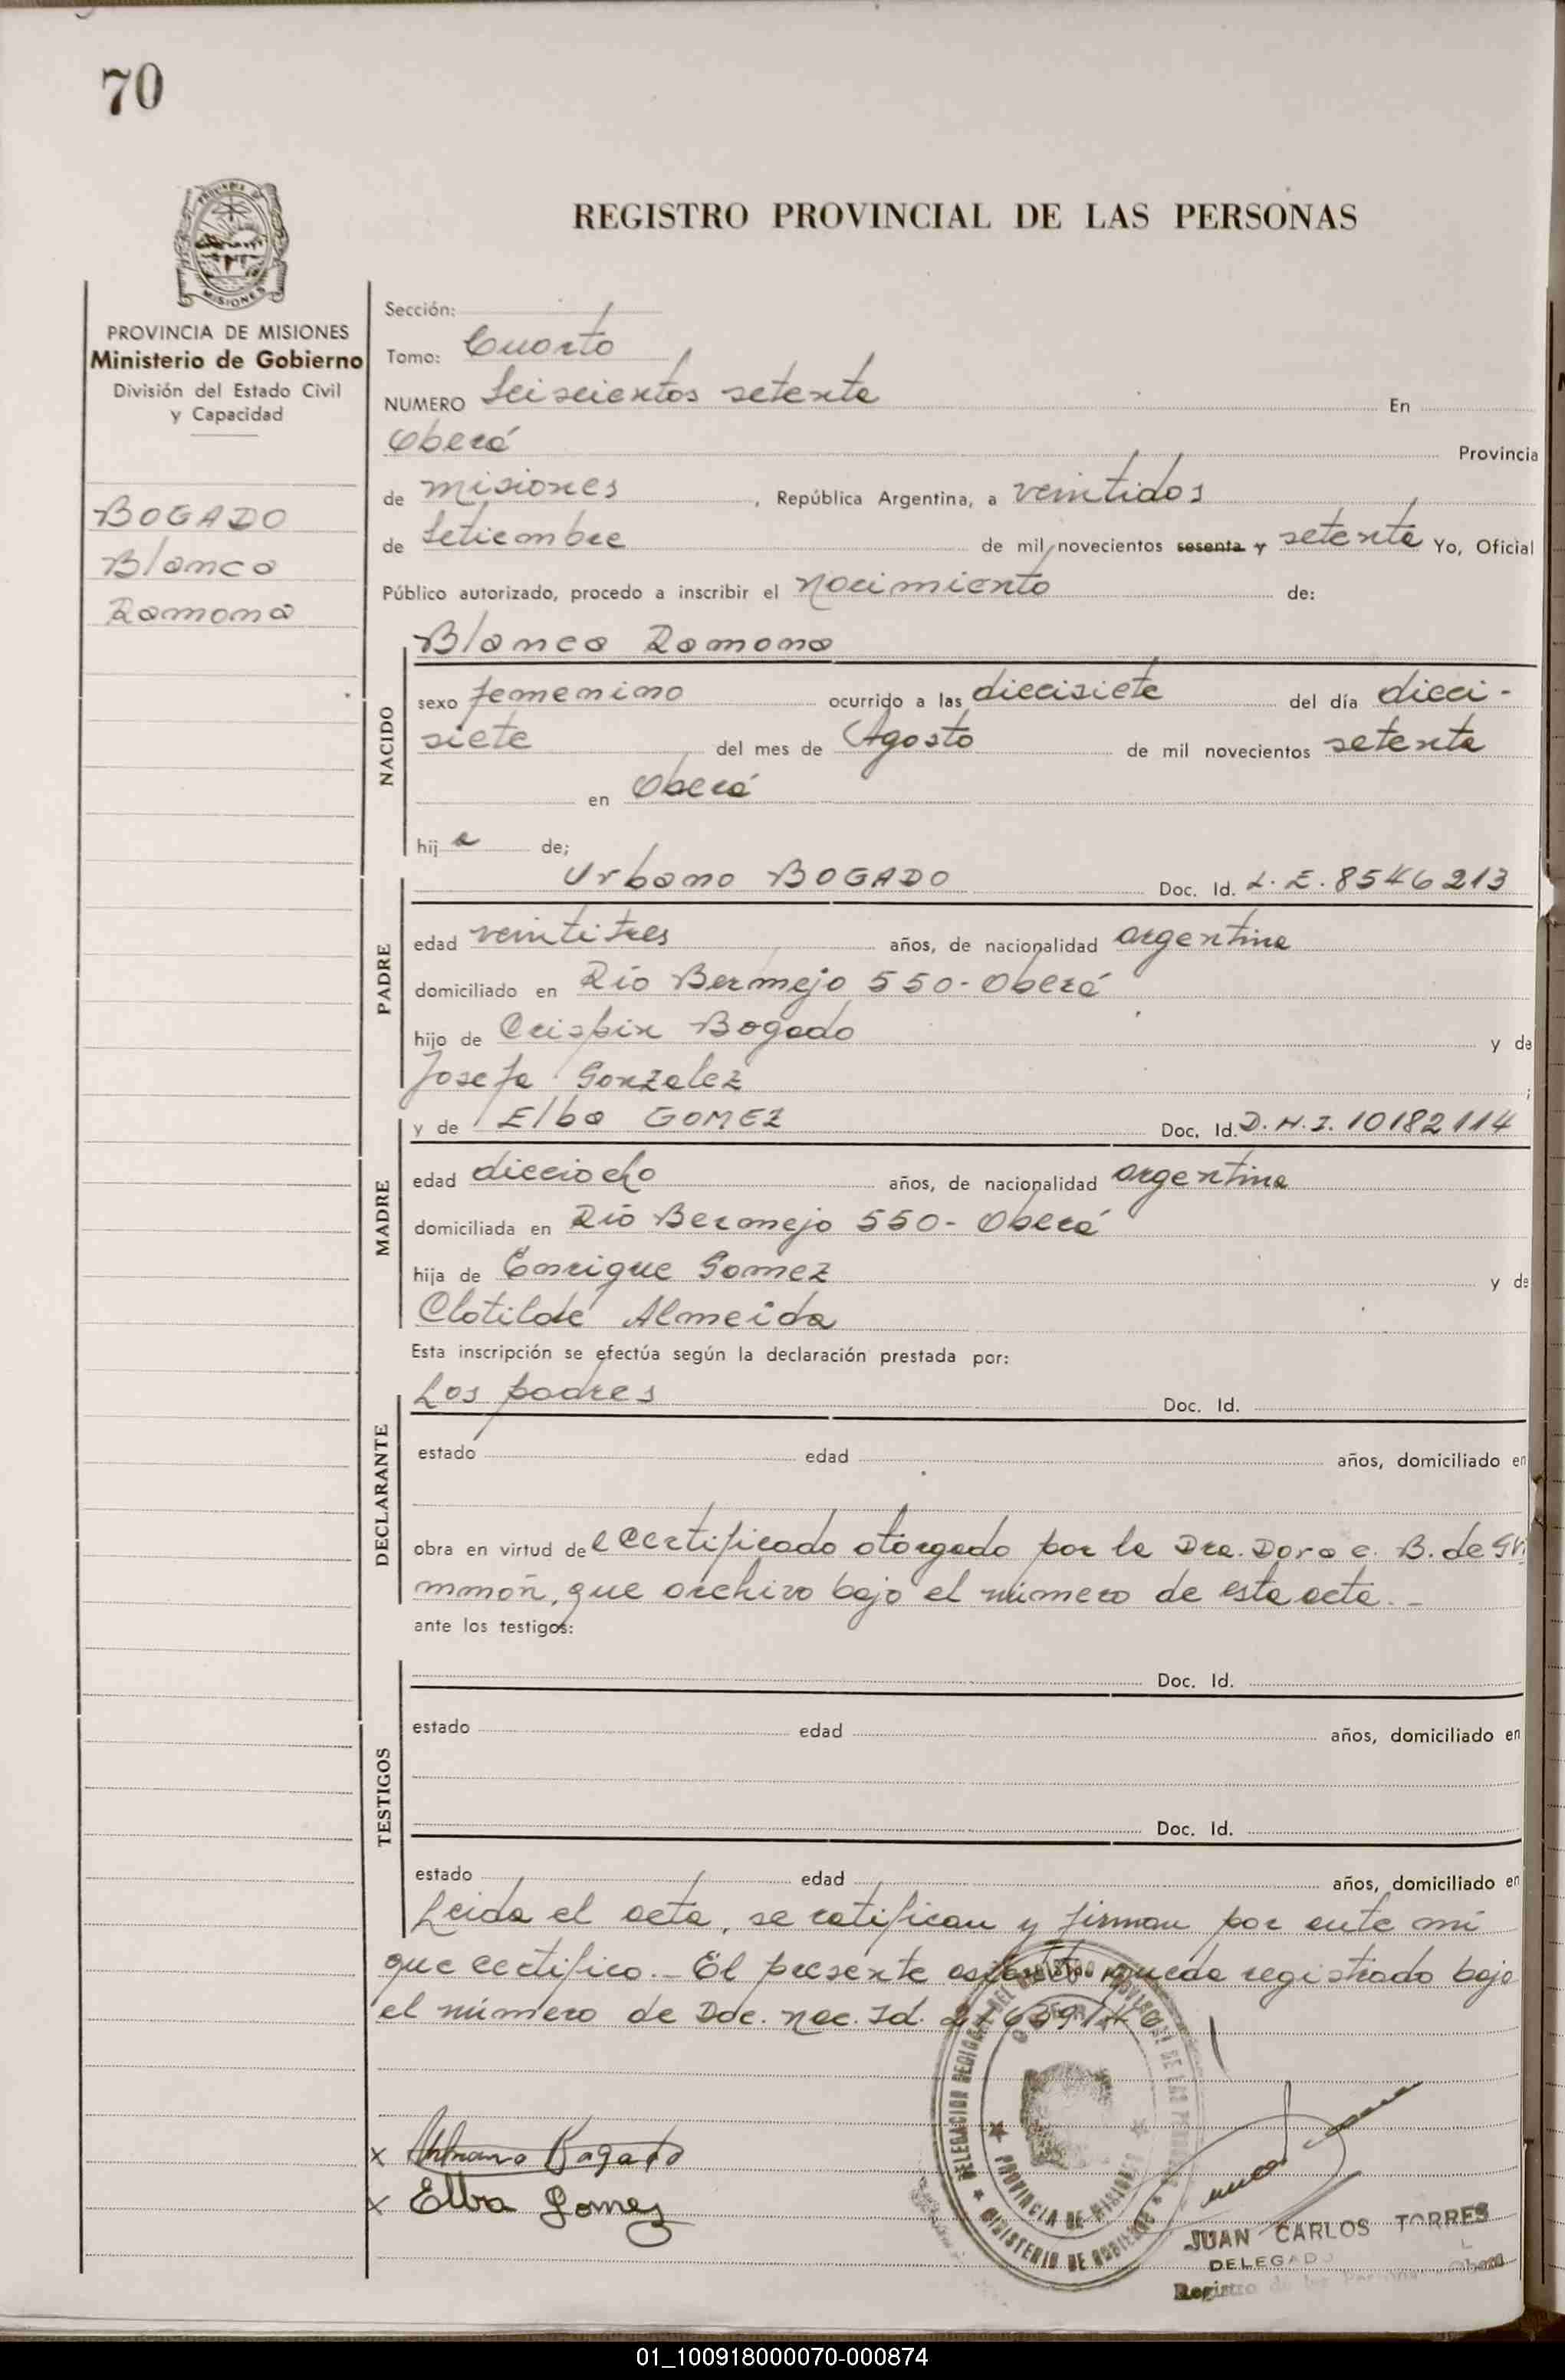 70
REGISTRO PROVINCIAL DE LAS PERSONAS
MISIONES
PROVINCIA DE MISIONES
Ministerio de Gobierno
División del Estado Civil
y Capacidad
BOGADO
Blanca
Ramona
Sección:
Tomo: Cuarto
NUMERO Seiscientos setenta En
Oberá Provincia
de Misiones, República Argentina, a veintidos
de Setiembre de mil novecientos sesenta y setenta Yo, Oficial
Público autorizado, procedo a inscribir el nacimiento de:
NACIDO
Blanca Ramona
sexo femenino ocurrido a las diecisiete del día dieci-
siete del mes de Agosto de mil novecientos setenta
en Oberá
hija de;
PADRE
Urbano BOGADO Doc. Id. L.E. 8546213
edad veintitres años, de nacionalidad argentina
domiciliado en Río Bermejo 550-Oberá
hijo de Crispin Bogado y de
Josefa Gonzalez ;
MADRE
y de Elba GOMEZ Doc. Id. D.N.I. 10182114
edad dieciocho años, de nacionalidad argentina
domiciliada en Río Bermejo 550-Oberá
hija de Enrique Gomez y de
Clotilde Almeida
Esta inscripción se efectúa según la declaración prestada por:
DECLARANTE
Los padres Doc. Id.
estado edad años, domiciliado en
obra en virtud del Certificado otorgado por la Dra. Dora C. B. de
que archivo bajo el número de esta acta.-
ante los testigos:
TESTIGOS
Doc. Id.
estado edad años, domiciliado en
Doc. Id.
estado edad años, domiciliado en
Leida el acta, se ratifican y firman por ante mi
que certifico.- El presente queda registrado bajo
el número de Doc. nac. Id.
x Urbano Bogado
x Elba Gomez
PROVINCIA DE MISIONES
MINISTERIO DE GOBIERNO
JUAN CARLOS TORRES
DELEGADO
Registro de las Personas Oberá
01_100918000070-000874